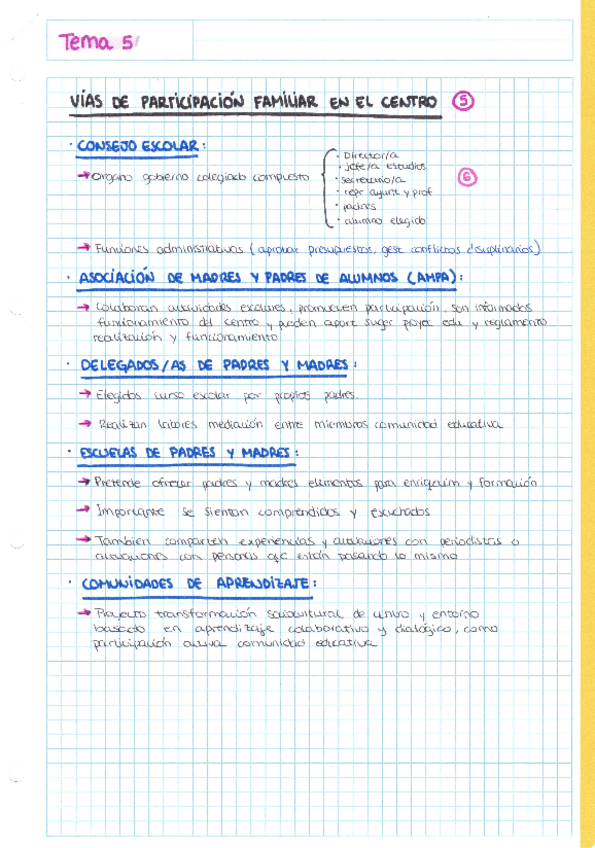 Tema 5
VÍAS DE PARTICIPACIÓN FAMILIAR EN EL CENTRO 5
· CONSEJO ESCOLAR:
→ Organo gobierno colegiado compuesto
· Director/a
· jefe/a estudios
· secretario/a
· repr ayunt y prof
· padres
· alumno elegido
6
→ Funciones administrativas (aprobar presupuestos, gest conflictos disciplinarios)
· ASOCIACIÓN DE MADRES Y PADRES DE ALUMNOS (AMPA):
→ Colaboran actividades escolares, promueven participación, son informados
funcionamiento del centro y pueden aport suger proyec edu y reglamento
realización y funcionamiento
· DELEGADOS/AS DE PADRES Y MADRES:
→ Elegidos curso escolar por propios padres.
→ Realizan labores mediación entre miembros comunidad educativa
· ESCUELAS DE PADRES Y MADRES:
→ Pretende ofrecer padres y madres elementos para enriquecim y formación
→ Importante se sientan comprendidos y escuchados
→ Tambien comparten experiencias y con periodistas o
con personas que están pasando lo mismo
· COMUNIDADES DE APRENDIZAJE:
→ Proyecto transformación sociocultural de centro y entorno
basado en aprendizaje colaborativo y dialógico, como
participación activa comunidad educativa